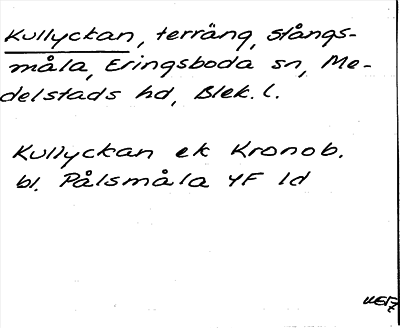 Kullyckan, terräng, Stångs-
måla, Eringsboda sn, Me-
delstads hd, Blek. l.
Kullyckan ek Kronob.
bl. Pålsmåla YF ld